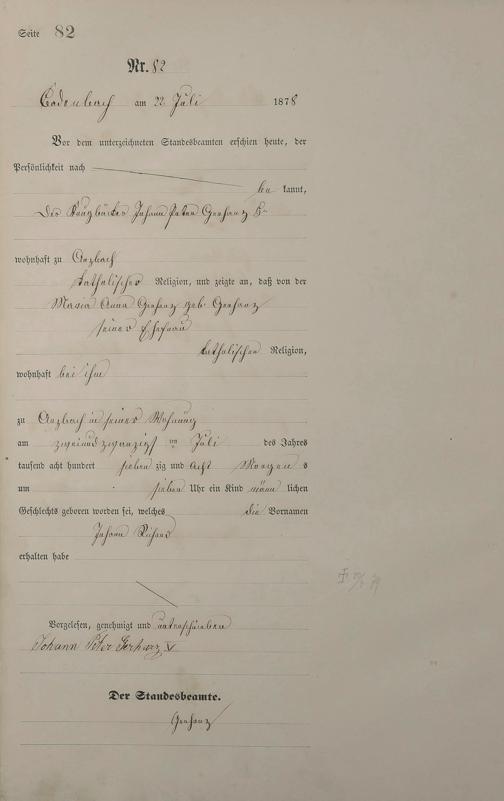 Seite 82
Nr. 82
Cadenbach am 22 Juli 1878
Vor dem unterzeichneten Standesbeamten erschien heute, der
Persönlichkeit nach
be kannt,
Der Johann Peter Gerharz
wohnhaft zu Arzbach
katholischer Religion, und zeigte an, daß von der
Maria Anna Gerharz geb. Gerharz
seiner Ehefrau
katholischer Religion,
wohnhaft bei ihm
zu Arzbach in seiner Wohnung
am zweiundzwanzigsten Juli des Jahres
tausend acht hundert sieben zig und Acht Morgens
um sieben Uhr ein Kind männlichen
Geschlechts geboren worden sei, welches die Vornamen
Johann Richard
erhalten habe
Vorgelesen, genehmigt und unterschrieben
Johann Peter Gerharz V
Der Standesbeamte.
Gerharz